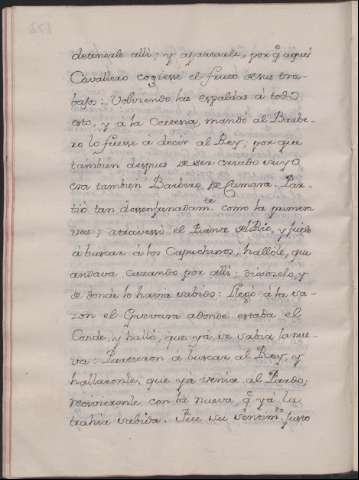 detenerle alli; y apartarle, porq̃ aquel
Cavallero cogiesse el fruto de su tra-
bajo: Volviendo las espaldas á todo
esto, y á la Carrera, mandó al Barbe-
ro lo fuesse á decir al Rey, porque
tambien despues de ser criado suyo
era tambien Barbero de Camara. Par-
tió tan desenfrenadam.te como la primera
vez; atravessó el Prado, y fuesse
á buscar á los Capuchinos, hallóle, que
andava Cazando por alli; dixoselo, y
de donde lo havia sabido: Llegó á la sa-
zon el Guevara adonde estaba el
Conde, y halló, que ya se sabia la nue-
va: Partieron á buscar al Rey, y
hallaronle, que ya venia al Pardo;
recivieronle con la nueva, q̃ ya la
trahia sabida. Fue su sentim.to justo